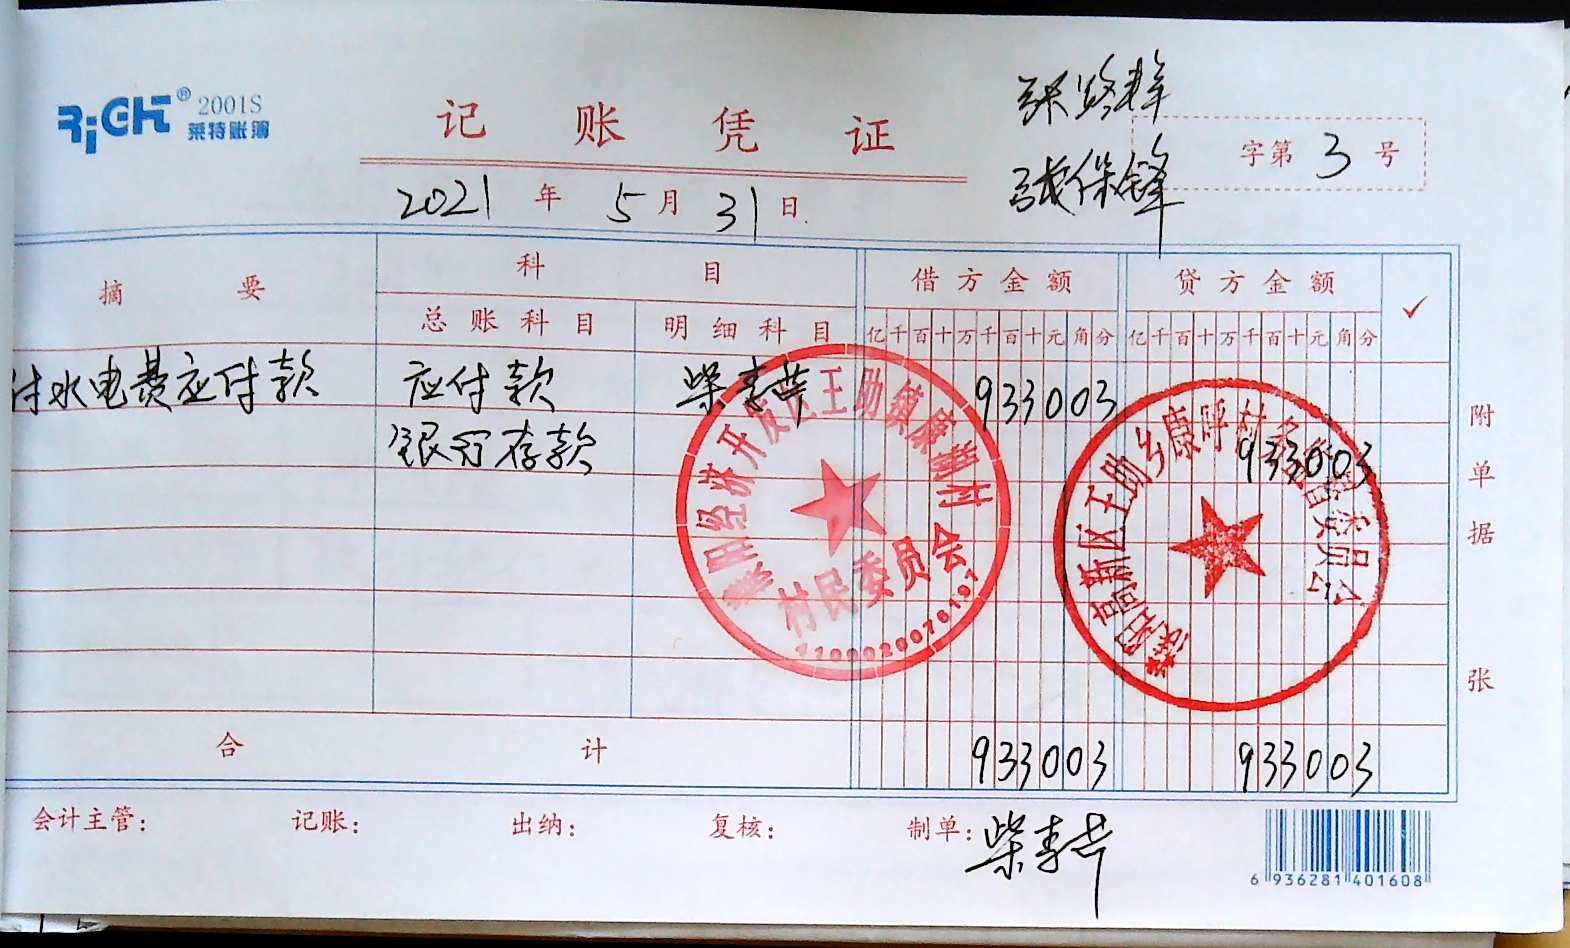 RiGHT® 2001S
莱特账簿
记账凭证
张
张保锋
字第 3 号
2021 年 5 月 31 日
摘要 科目 借方金额 贷方金额 ✓
总账科目 明细科目 亿千百十万千百十元角分 亿千百十万千百十元角分
付水电费应付款 应付款 柴 933003
银行存款 933003
附单据 张
濮阳经济开发区王助镇康呼村
村民委员会
濮阳高新区王助乡康呼村务监督委员会
合计 933003 933003
会计主管: 记账: 出纳: 复核: 制单: 柴
6 936281 401608